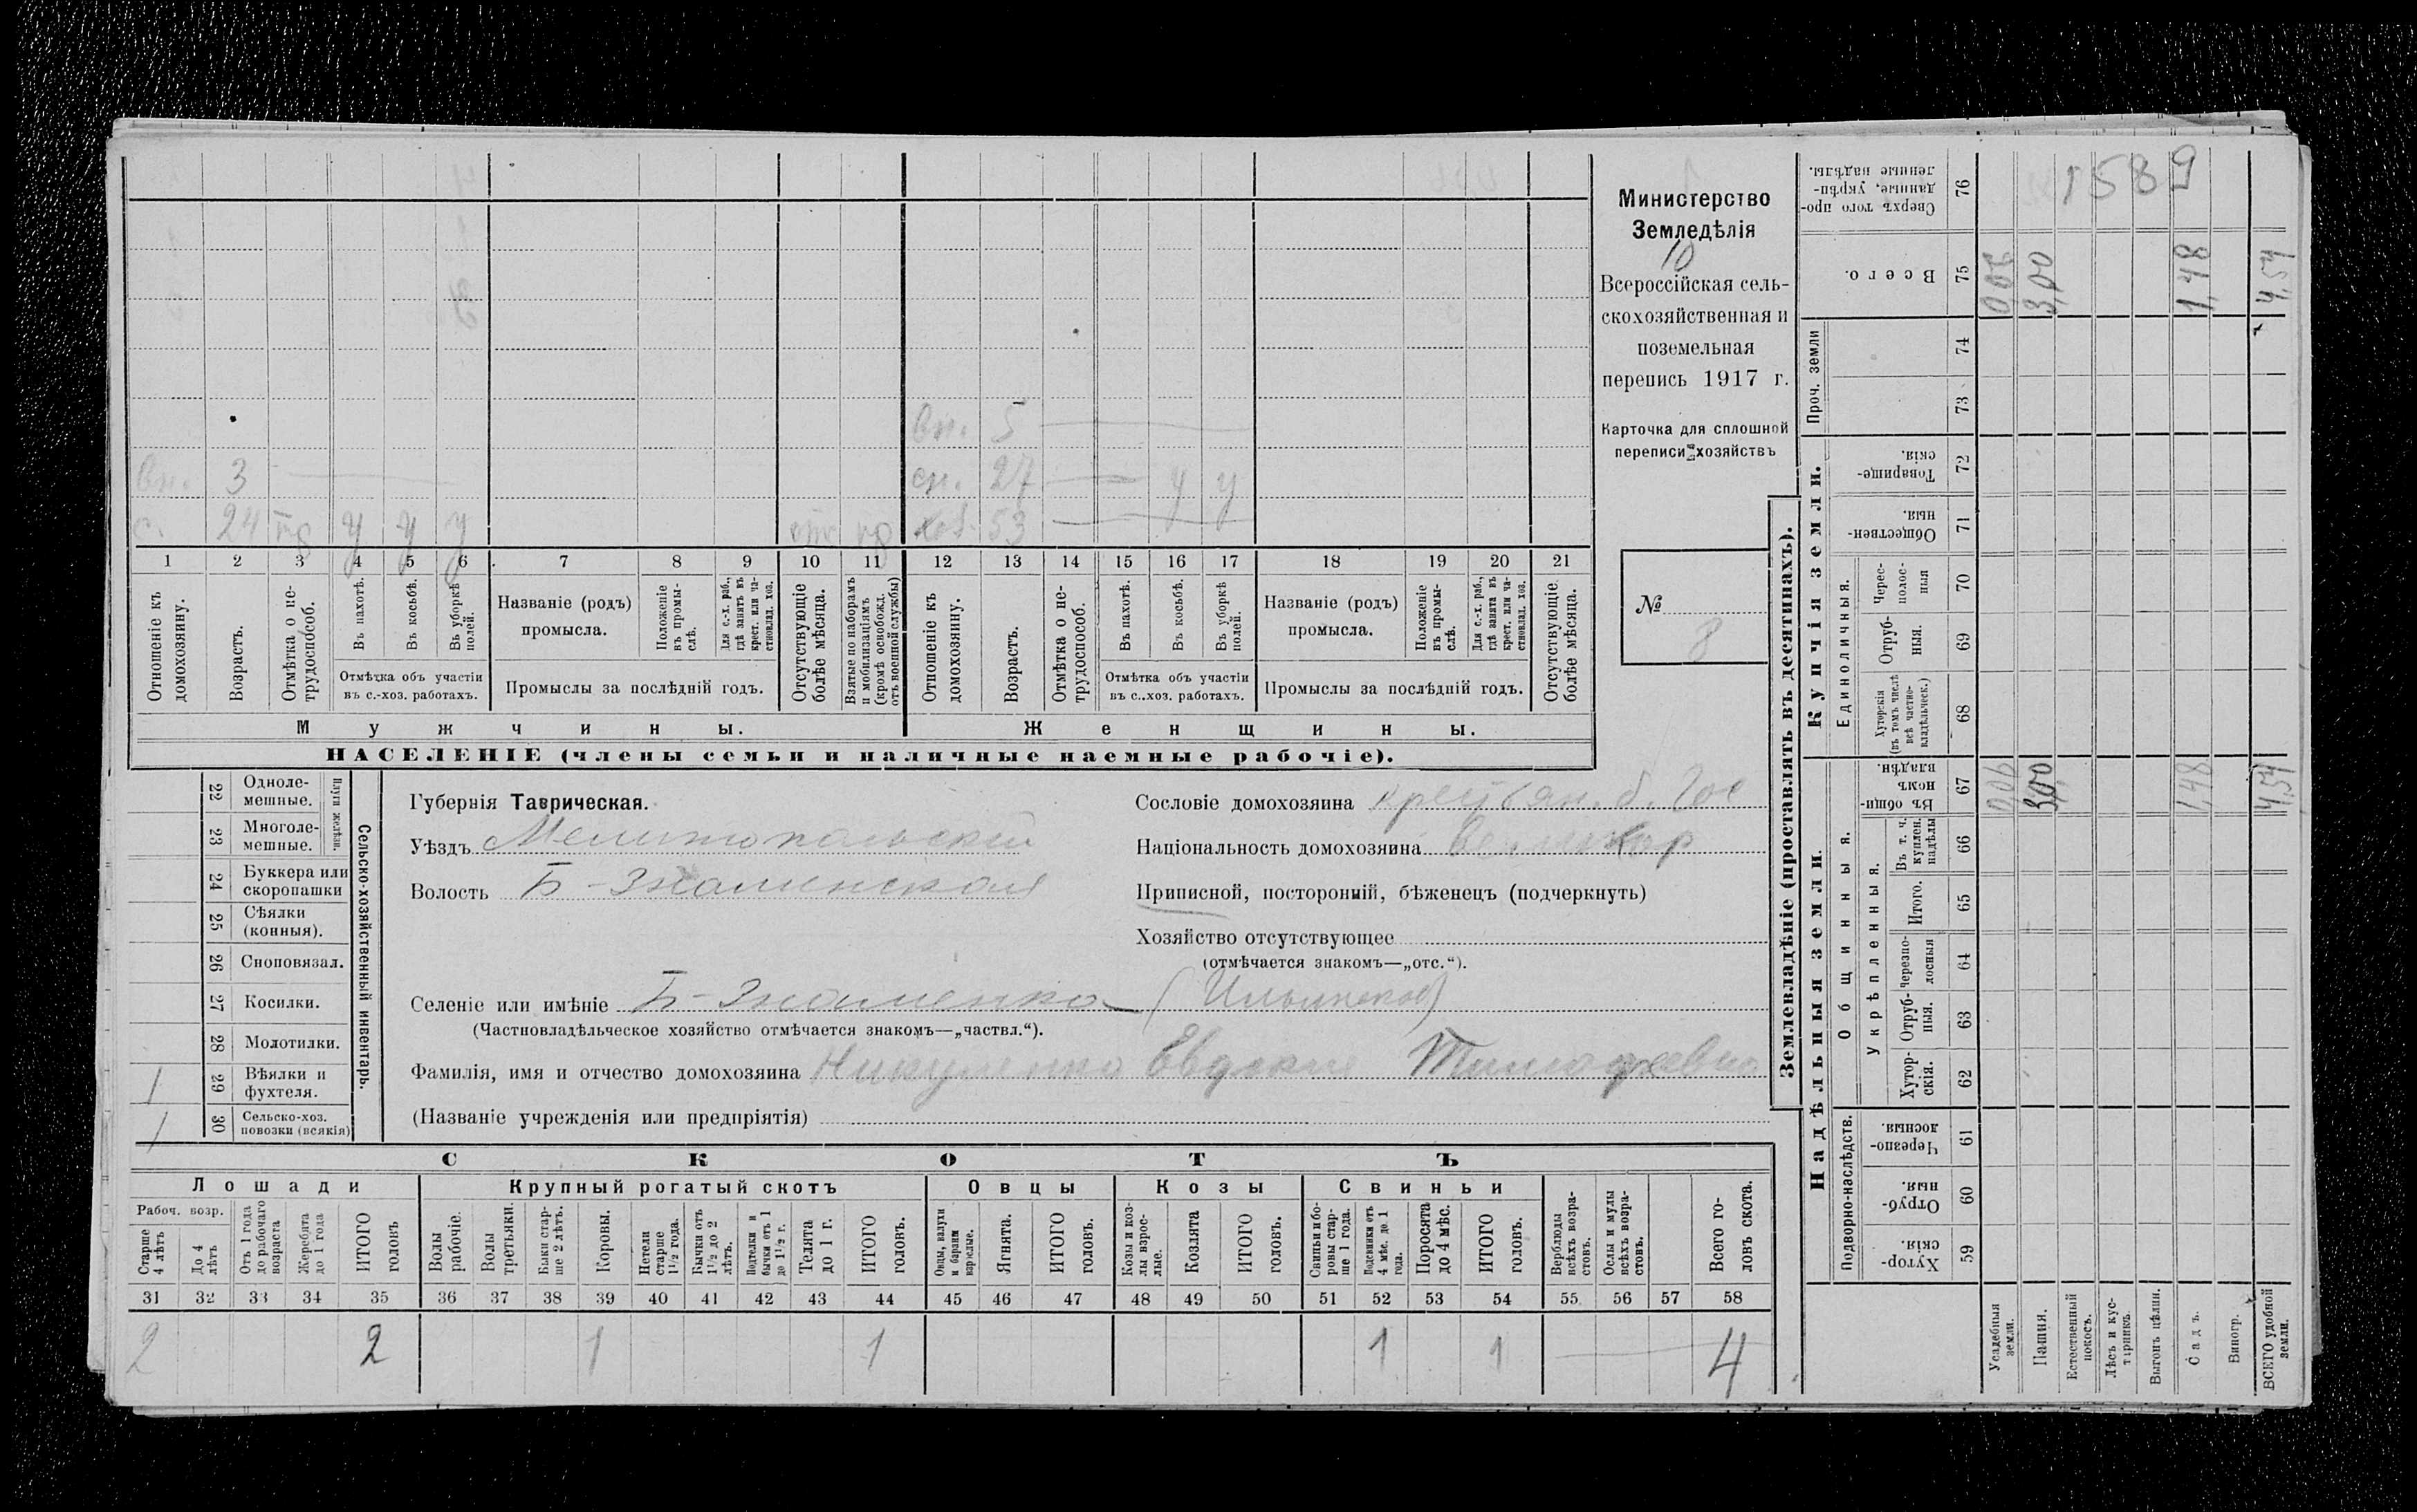 вн. 5
вн. 3 сн. 27 у у
с. 24 у у у хоз. 53
1 2 3 4 5 6 7 8 9 10 11 12 13 14 15 16 17 18 19 20 21
Отношеніе къ домохозяину.
Возрастъ.
Отмѣтка о не-трудоспособ.
Въ пахотѣ.
Въ косьбѣ.
Въ уборкѣ полей.
Отмѣтка объ участіи
въ с.-хоз. работахъ.
Названіе (родъ)
промысла.
Положеніе въ промы-слѣ.
Для с.-х. раб., гдѣ занятъ въ крест. или ча-стновлад. хоз.
Промыслы за послѣдній годъ.
Отсутствующіе болѣе мѣсяца.
Взятые по наборамъ и мобилизаціямъ (кромѣ освобожд. отъ военной службы)
Отношеніе къ домохозяину.
Возрастъ.
Отмѣтка о не-трудоспособ.
Въ пахотѣ.
Въ косьбѣ.
Въ уборкѣ полей.
Отмѣтка объ участіи
въ с.-хоз. работахъ.
Названіе (родъ)
промысла.
Положеніе въ промы-слѣ.
Для с.-х. раб., гдѣ занята въ крест. или ча-стновлад. хоз.
Промыслы за послѣдній годъ.
Отсутствующіе болѣе мѣсяца.
Мужчины. Женщины.
НАСЕЛЕНІЕ (члены семьи и наличные наемные рабочіе).
Министерство
Земледѣлія
10
Всероссійская сель-
скохозяйственная и
поземельная
перепись 1917 г.
Карточка для сплошной
переписи хозяйствъ
№
8
22 Одноле-мешные.
23 Многоле-мешные.
Плуги желѣзн.
24 Буккера или скоропашки
25 Сѣялки (конныя).
26 Сноповязал.
27 Косилки.
28 Молотилки.
1 29 Вѣялки и фухтеля.
1 30 Сельско-хоз. повозки (всякія)
Сельско-хозяйственный инвентарь.
Губернія Таврическая.
Уѣздъ Мелитопольскій
Волость Б-Знаменская
Сословіе домохозяина крестьян. б. Гос
Національность домохозяина Великор
Приписной, посторонній, бѣженецъ (подчеркнуть)
Хозяйство отсутствующее
(отмѣчается знакомъ—„отс.“).
Селеніе или имѣніе Б-Знаменка (Ильинское)
(Частновладѣльческое хозяйство отмѣчается знакомъ—„частвл.“).
Фамилія, имя и отчество домохозяина Никуленко Евдокія Тимофеевна
(Названіе учрежденія или предпріятія)
СКОТЪ
Лошади Крупный рогатый скотъ Овцы Козы Свиньи
Рабоч. возр.
Старше 4 лѣтъ
До 4 лѣтъ
Отъ 1 года до рабочаго возраста
Жеребята до 1 года
ИТОГО головъ
Волы рабочіе.
Волы третьяки.
Быки стар-ше 2 лѣтъ.
Коровы.
Нетели старше 1 1/2 года.
Бычки отъ 1 1/2 до 2 лѣтъ.
Подтелки и бычки отъ 1 до 1 1/2 г.
Телята до 1 г.
ИТОГО головъ.
Овцы, валухи и бараны взрослые.
Ягнята.
ИТОГО головъ.
Козы и коз-лы взрос-лые.
Козлята
ИТОГО головъ.
Свиньи и бо-ровы стар-ше 1 года.
Подсвинки отъ 4 мѣс. до 1 года.
Поросята до 4 мѣс.
ИТОГО головъ.
Верблюды всѣхъ возра-стовъ.
Ослы и мулы всѣхъ возра-стовъ.
Всего го-ловъ скота.
31 32 33 34 35 36 37 38 39 40 41 42 43 44 45 46 47 48 49 50 51 52 53 54 55 56 57 58
2 2 1 1 1 1 4
Землевладѣніе (проставлять въ десятинахъ).
Сверхъ того про-данные, укрѣп-ленные надѣлы. 76 1589
Всего. 75 0,06 3,00 1,48 4,54
Проч. земли 74
73
Купчія земли.
Товарище-скія. 72
Обществен-ныя. 71
Единоличныя.
Черес-полос-ныя 70
Отруб-ныя. 69
Хуторскія (въ томъ числѣ всѣ частно-владѣльческ.) 68
Надѣльныя земли.
Общинныя.
Въ общи-номъ владѣн. 67 0,06 3,00 1,48 4,54
Укрѣпленныя.
Въ т. ч. куплен. надѣлы 66
Итого. 65
Черезпо-лосныя 64
Отруб-ныя. 63
Хутор-скія. 62
Подворно-наслѣдств.
Черезпо-лосныя. 61
Отруб-ныя. 60
Хутор-скія. 59
Усадебныя земли.
Пашня.
Естественный покосъ.
Лѣсъ и кус-тарникъ.
Выгонъ цѣлин.
Садъ.
Виногр.
ВСЕГО удобной земли.